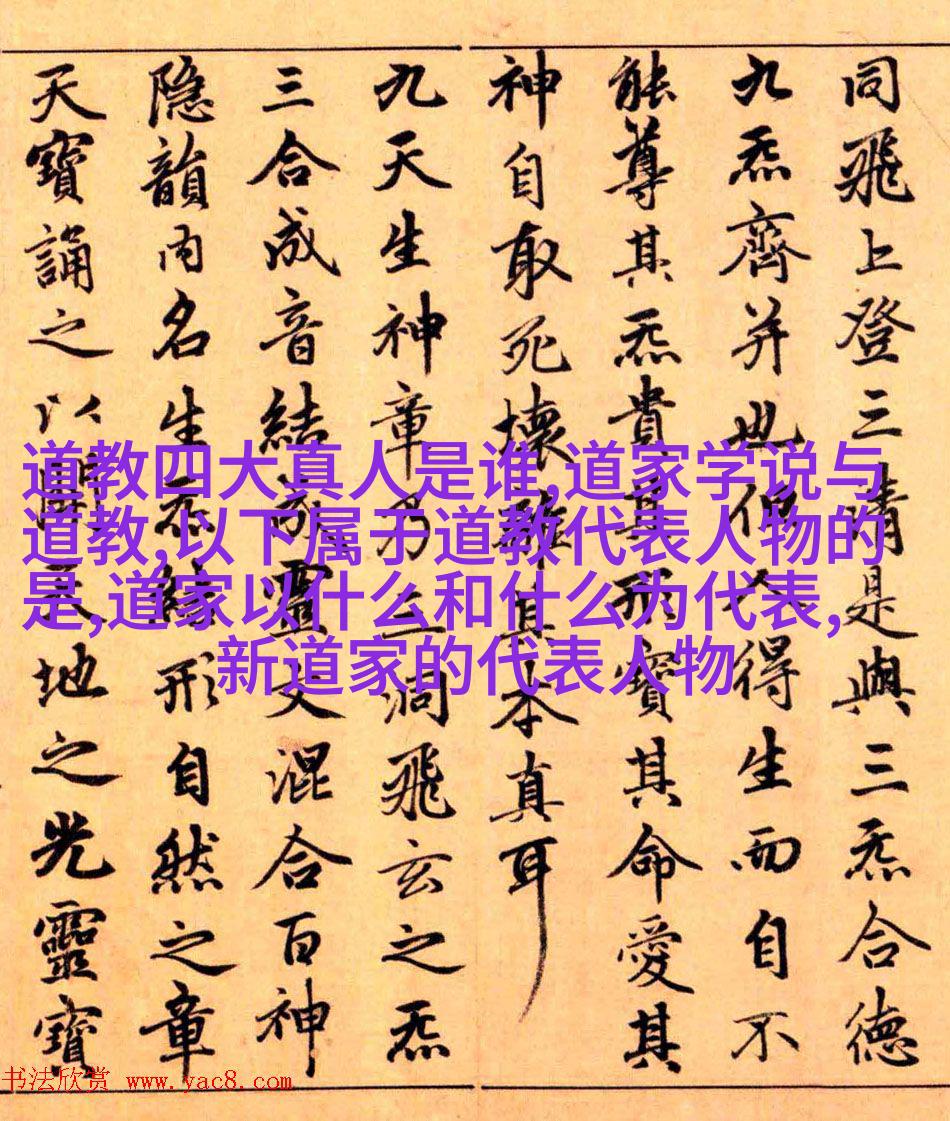 道教四大真人是谁,道家学说与
道教,以下属于道教代表人物的
是,道家以什么和什么为代表,
新道家的代表人物
同飛上登三清是與三炁合德
九炁齊并也但人得生而自不
能尊其炁貴其形寶其命愛其
神自取死壞離其本真耳
九天生神章乃三洞飛玄之炁
三合成音結成靈文混合百神
隱韻內名生炁結形自然之章
天寶誦之以開天地之光靈寶
书法欣赏 www.yac8.com